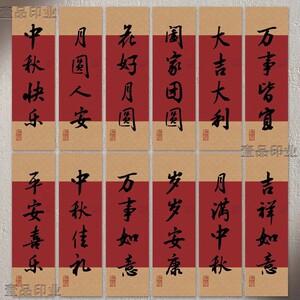 中秋快乐
月圆人安
花好月圆
阖家团圆
大吉大利
万事皆宜
平安喜乐
中秋佳礼
万事如意
岁岁安康
月满中秋
吉祥如意
壹品印业
壹品印业
壹品印业
壹品印业